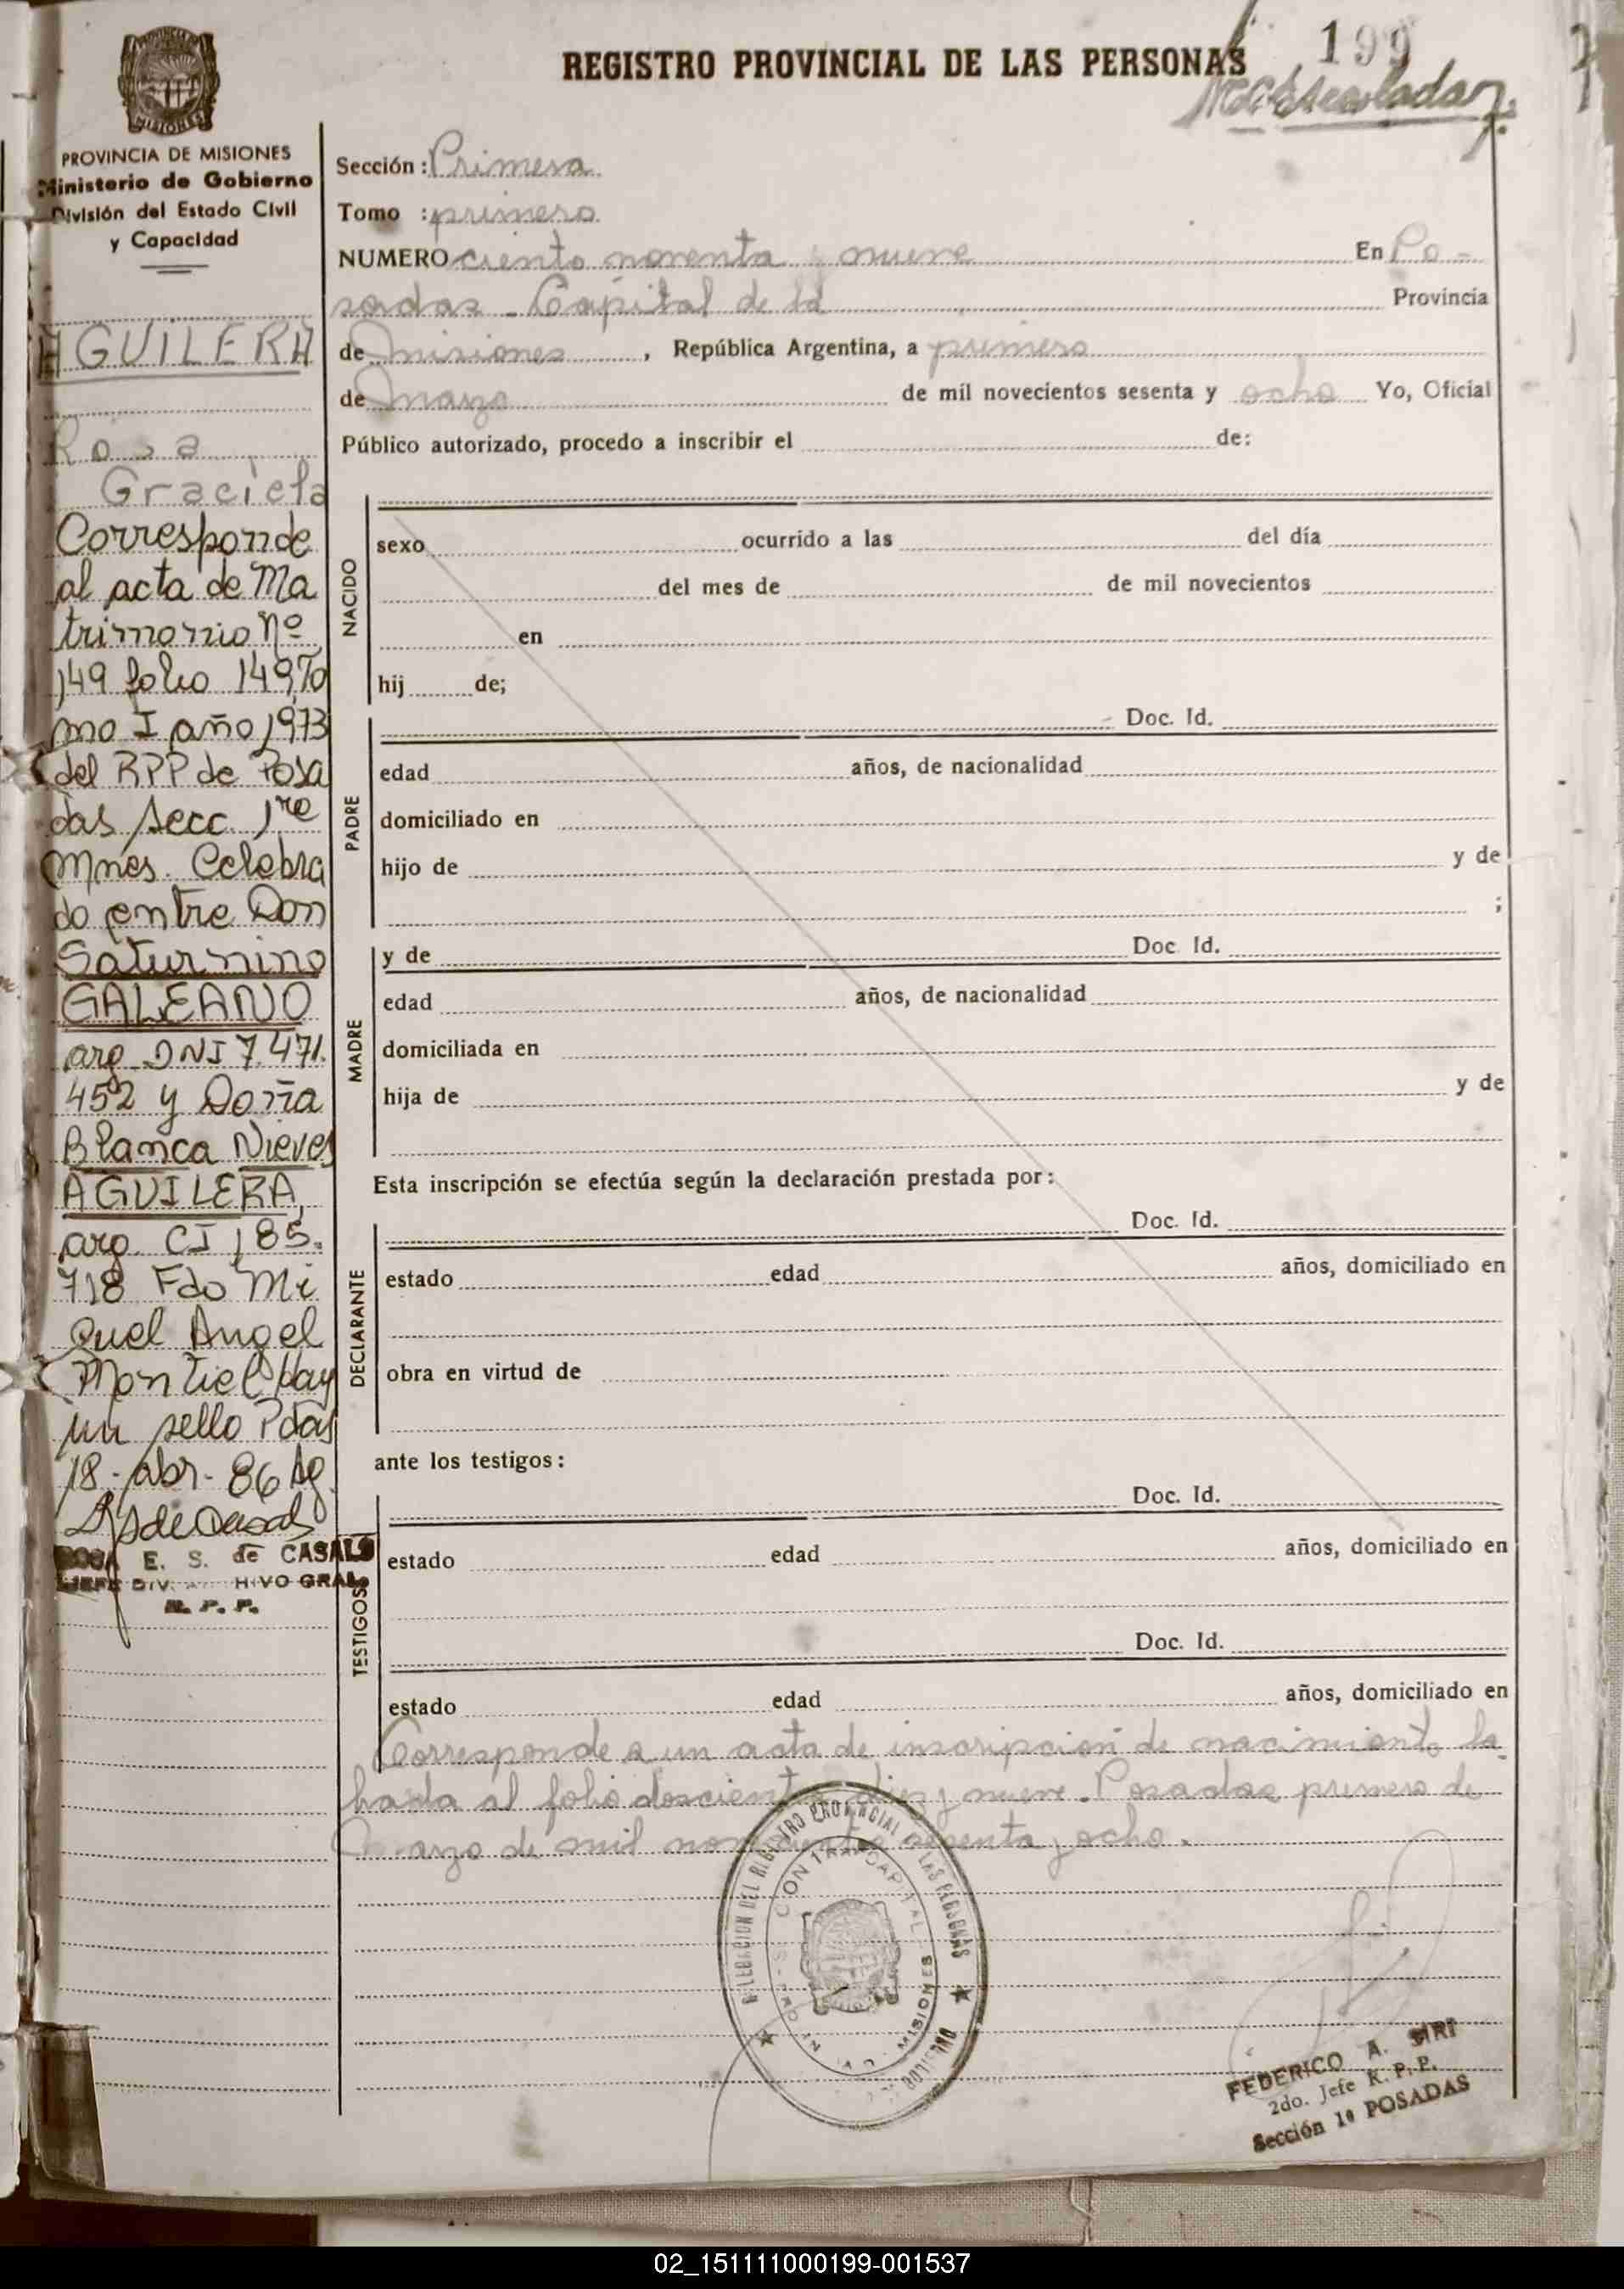 REGISTRO PROVINCIAL DE LAS PERSONAS
199
PROVINCIA DE MISIONES
Ministerio de Gobierno
División del Estado Civil
y Capacidad
AGUILERA
Rosa
Graciela
Corresponde
al acta de Ma
trimonio Nº
149 folio 149 To
mo I año 1973
del RPP de Posa
das Secc. 1ra
Mnes. Celebra
do entre Don
Saturnino
GALEANO
arg. DNI 7.471.
452 y Doña
Blanca Nieves
AGUILERA,
arg. CI 185.
718 Fdo Mi
guel Angel
Montiel Hay
un sello Pdas
18-abr-86
ROSA E. S. de CASALS
JEFE DIV. ARCHIVO GRAL.
R. P. P.
Sección : Primera
Tomo : primero
NUMERO ciento noventa y nueve En Po-
sadas - Capital de la Provincia
de misiones, República Argentina, a primero
de marzo de mil novecientos sesenta y ocho Yo, Oficial
Público autorizado, procedo a inscribir el de:
NACIDO
sexo ocurrido a las del día
del mes de de mil novecientos
en
hij de;
PADRE
Doc. Id.
edad años, de nacionalidad
domiciliado en
hijo de y de
;
MADRE
y de Doc. Id.
edad años, de nacionalidad
domiciliada en
hija de y de
Esta inscripción se efectúa según la declaración prestada por:
DECLARANTE
Doc. Id.
estado edad años, domiciliado en
obra en virtud de
ante los testigos:
TESTIGOS
Doc. Id.
estado edad años, domiciliado en
Doc. Id.
estado edad años, domiciliado en
Corresponde a un acta de inscripción de nacimiento la
brada al folio doscientos diez y nueve. Posadas primero de
Marzo de mil novecientos sesenta y ocho.
DEL REGISTRO PROVINCIAL DE LAS PERSONAS
CAPITAL
MISIONES
FEDERICO A. SIRI
2do. Jefe R. P. P.
Sección 1ª POSADAS
02_151111000199-001537